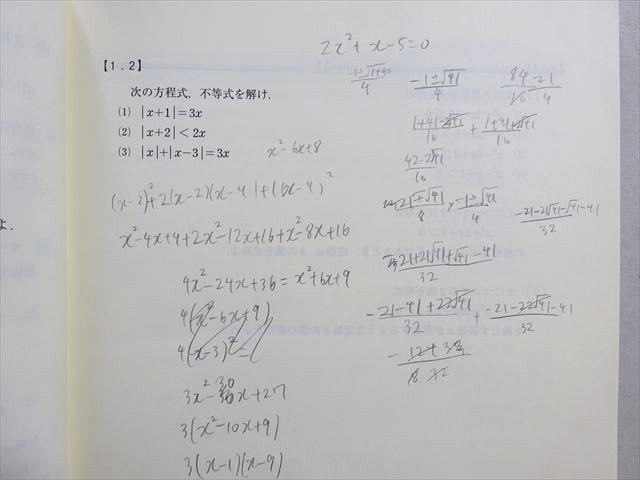 【1.2】
次の方程式，不等式を解け．
(1) |x+1|=3x
(2) |x+2|<2x
(3) |x|+|x-3|=3x
x²-6x+8
(x-2)²+2(x-2)(x-4)+(x-4)²
x²-4x+4+2x²-12x+16+x²-8x+16
4x²-24x+36=x²+6x+9
4(x²-6x+9)
4(x-3)²=(
3x²-30x+27
3(x²-10x+9)
3(x-1)(x-9)
2x²+x-5=0
-1±√41/4
84/16=21/4
1+41-2√41/16+1+41+2√41/16
42-2√41/16
-21-21√41-√41-41/32
-21-41+22√41/32+-21-22√41-41/32
よ．